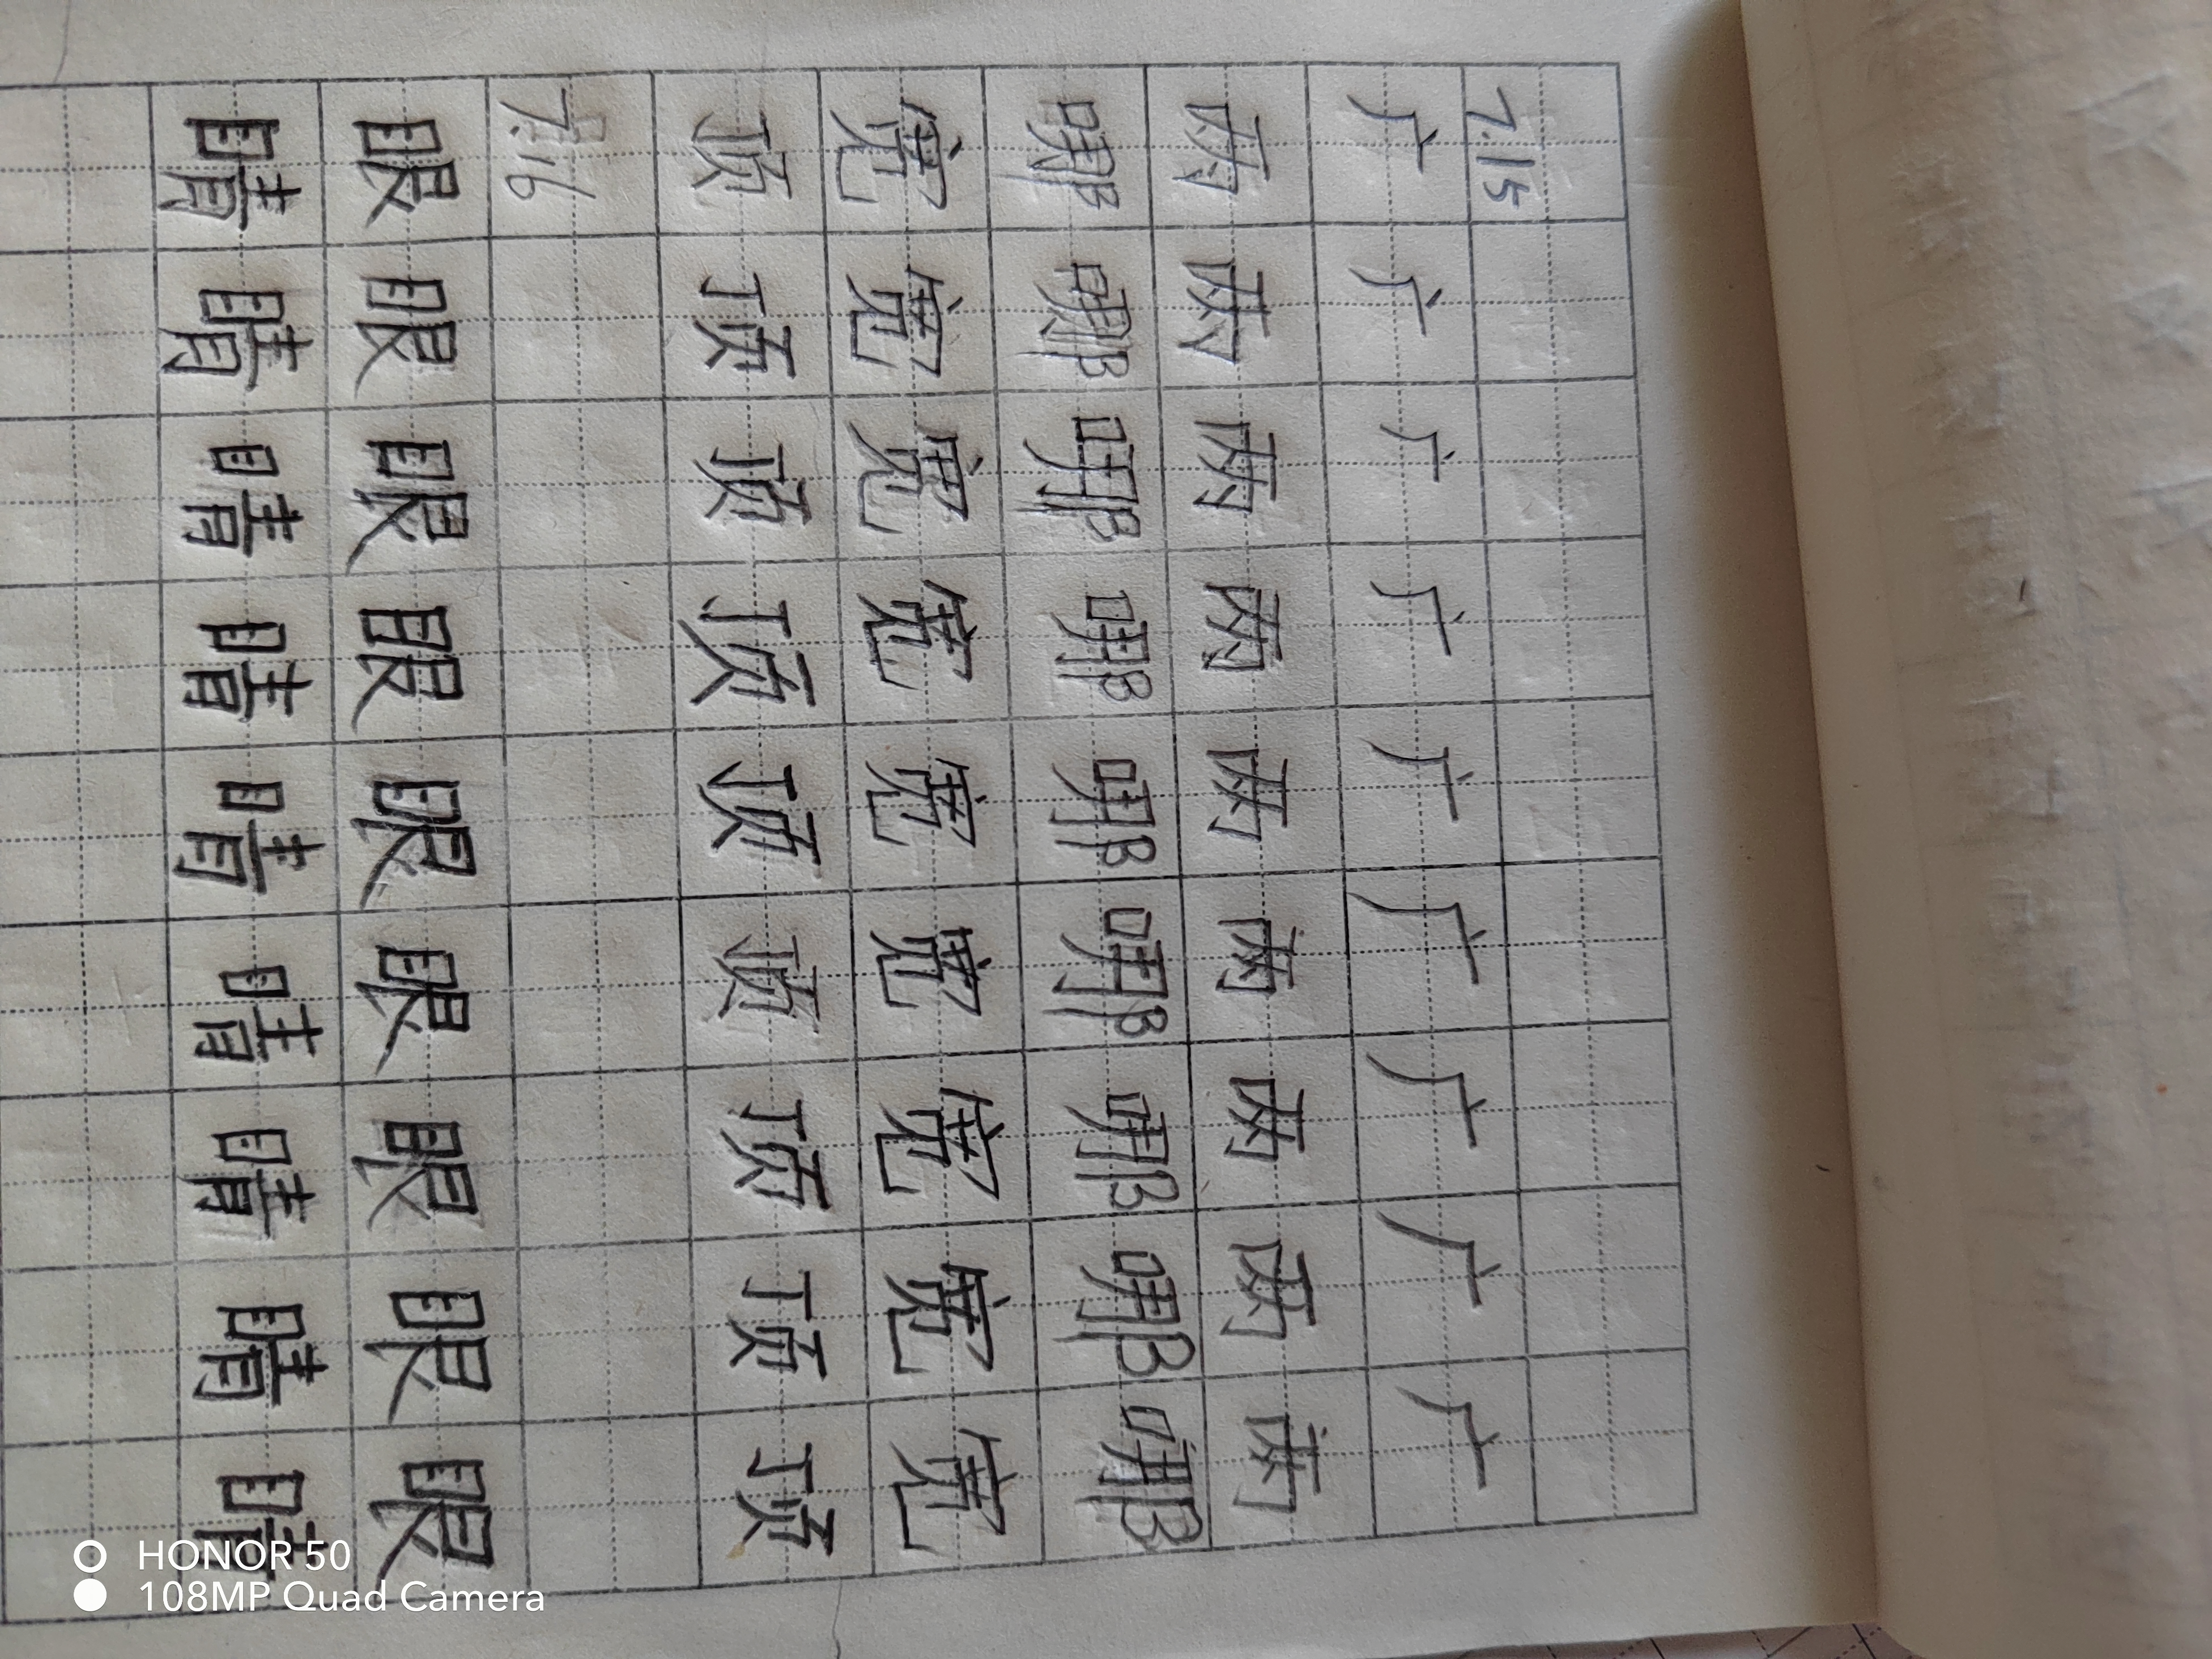 7.15
广广广广广广广广广
两两两两两两两两两
哪哪哪哪哪哪哪哪哪
宽宽宽宽宽宽宽宽宽
顶顶顶顶顶顶顶顶顶
7.16
眼眼眼眼眼眼眼眼眼
睛睛睛睛睛睛睛睛睛
HONOR 50
108MP Quad Camera